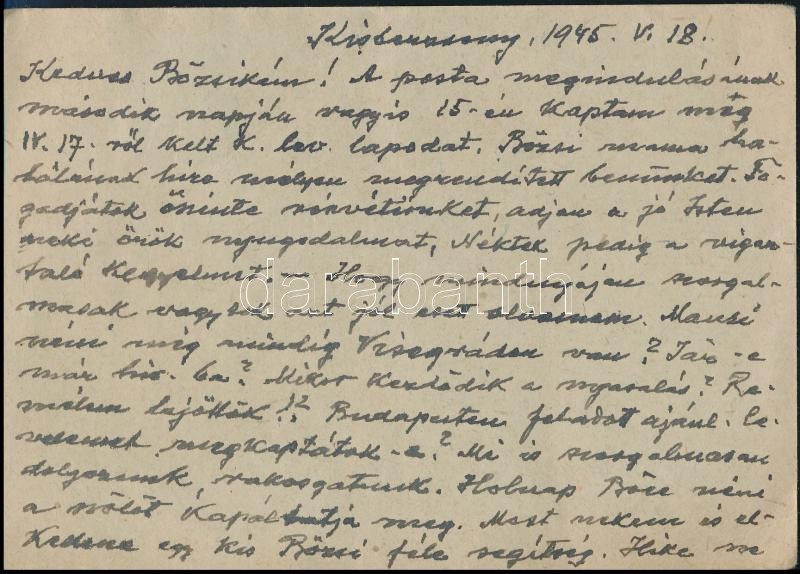 Kisberzseny, 1945. V. 18.
Kedves Bözsikém! A posta megindulásának
második napján vagyis 15-én kaptam meg
IV. 17.-ről kelt k. lev. lapodat. Bözsi mama ha-
lálának híre mélyen megrendített bennünket. Fo-
gadjátok őszinte részvétünket, adjon a jó Isten
neki örök nyugodalmat, Néktek pedig a vigasz-
taló kegyelmet. – Hogy mindnyájan szorgal-
masak vagytok azt jól esett olvasnom. Mausi
néni még mindig Visegrádon van? Jár-e
már be? Mikor kezdődik a nyaralás? Re-
mélem lejöttök!? Budapesten feladott ajánl. le-
velemet megkaptátok-e? Mi is szorgalmasan
dolgozunk, rakosgatunk. Holnap Böse néni
a szőlőt kapáltatja meg. Most nekem is el-
kedene egy kis Bözsi féle segítség. Hike me
darabanth